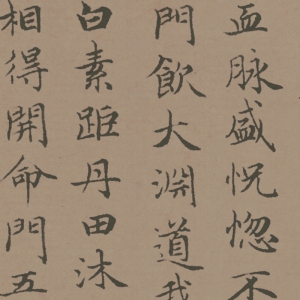 血脉盛恍惚不
門飲大淵道我
白素距丹田沐
相得開命門五